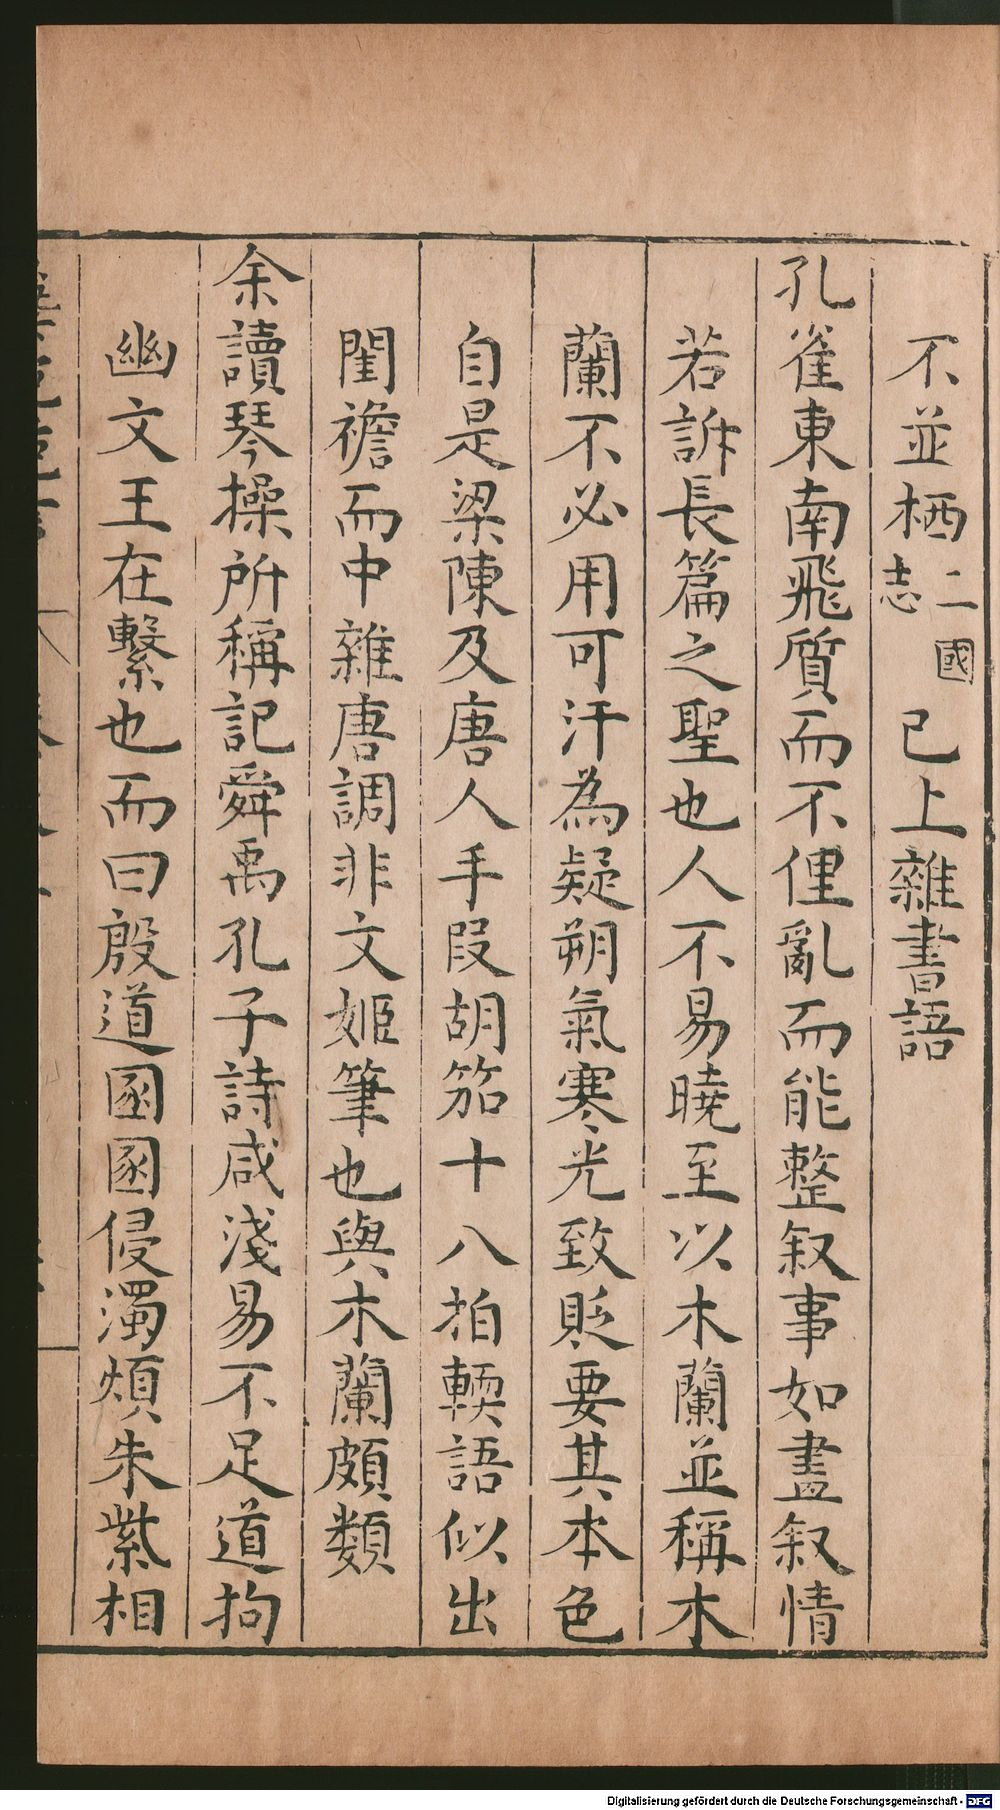 不並栖二國志已上雜書語
孔雀東南飛質而不俚亂而能整叙事如畫叙情
若訴長篇之聖也人不易曉至以木蘭並稱木
蘭不必用可汗為疑朔氣寒光致貶要其本色
自是梁陳及唐人手叚胡笳十八拍輭語似出
閨襜而中雜唐調非文姬筆也與木蘭頗類
余讀琴操所稱記舜禹孔子詩咸淺易不足道拘
幽文王在繫也而曰殷道圂圂侵濁煩朱紫相
Digitalisierung gefördert durch die Deutsche Forschungsgemeinschaft - DFG